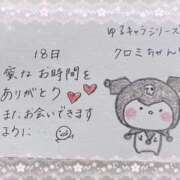 ゆるキャラシリーズ
クロミちゃん
18日
蜜なお時間を
ありがとう
またお会いできます
ように